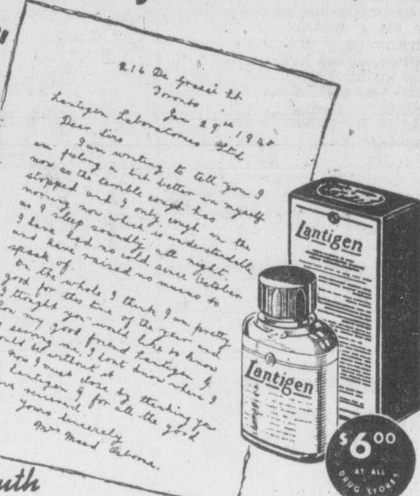 216 De Grassi St
Toronto
Jan 29th, 194
Lantigen Laboratories Ltd
Dear Sirs
I am writing to tell you I
am feeling a bit better in myself
now as the terrible cough has
stopped and I only cough in the
morning now which is understandable
as I sleep soundly all night.
I have had no cold since October
and have raised no mucus to
speak of.
On the whole I think I am pretty
good for this time of the year and
I thought you would like to know
how my good friend Lantigen is
serving me. I dont know where I
would be without it
now I must close by thanking you
Lantigen for all the good
received.
yours sincerely
Mrs Maud
Lantigen
Lantigen
$6.00
AT ALL
DRUG STORES
uth